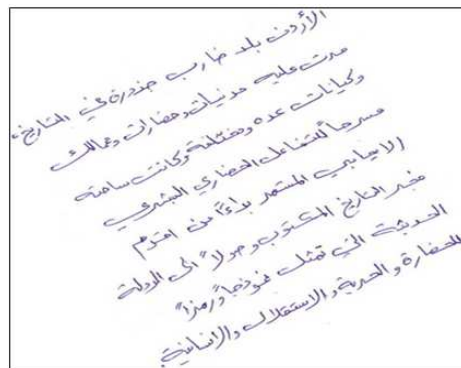 الأردن بلد ضارب جذوره في التاريخ،
مرت عليه مدنيات وحضارات وممالك
وكيانات عده ومختلفة وكانت ساحته
مسرحاً للتفاعل الحضاري البشري
الايجابي المستمر بداءً من اقدم
فجر التاريخ المكتوب وصولاً الى الدولة
الحديثة التي تمثل نموذجاً ورمزاً
للحضارة والحرية والاستقلال والانسانية.